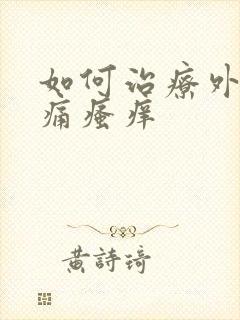 如何治療外
痛瘙痒
黃詩琦